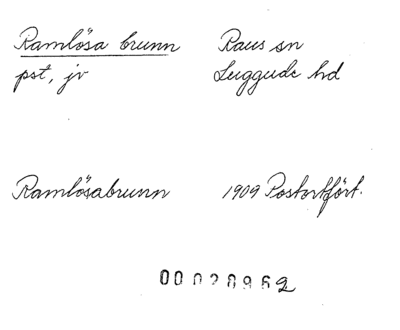 Ramlösa brunn Raus sn
pst, jv Luggude hd
Ramlösabrunn 1909 Postortfört.
00020962